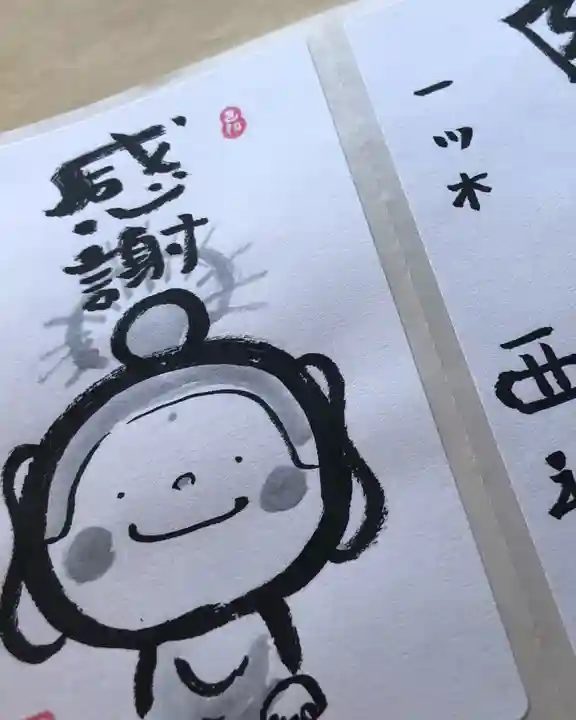 感
謝
一
ツ
木
西